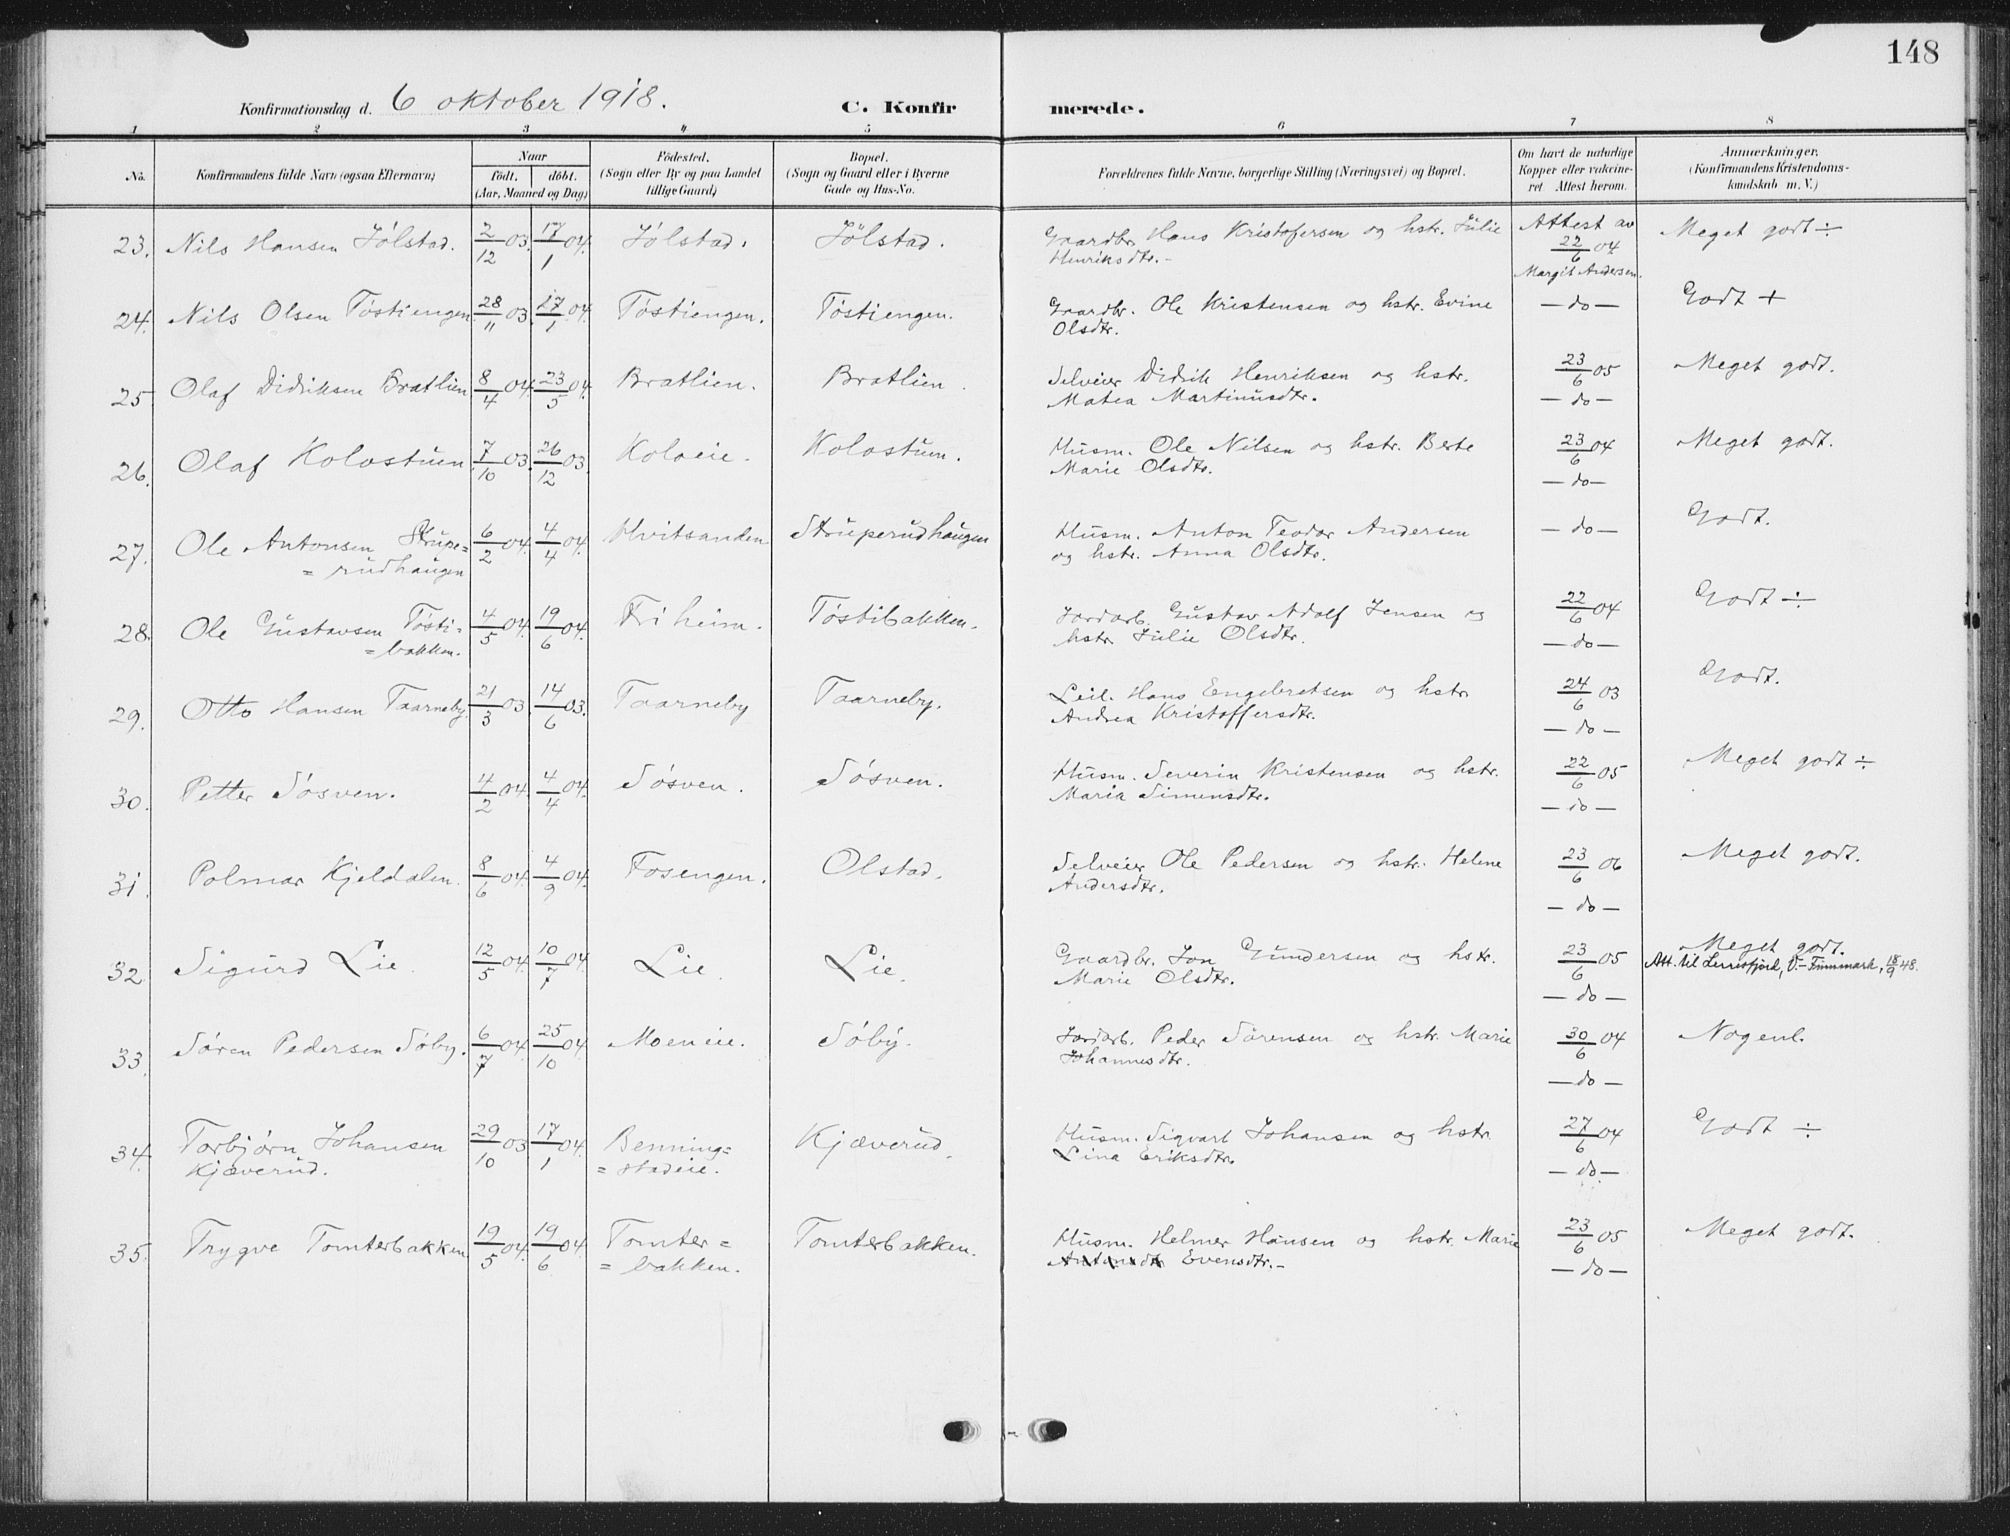 148
Konfirmationsdag d. 6 oktober 1918. C. Konfirmerede.
1 2 3 4 5 6 7 8
No. Konfirmandens fulde Navn (ogsaa Efternavn) Naar født. døbt. (Aar, Maaned og Dag) Fødested. (Sogn eller By og paa Landet tillige Gaard) Bopæl. (Sogn og Gaard eller i Byerne Gade og Hus-No. Forældrenes fulde Navne, borgerlige Stilling (Næringsvei) og Bopæl. Om havt de naturlige Kopper eller vakcineret. Attest herom. Anmærkninger. (Konfirmandens Kristendomskundskab m. V.)
23. Nils Hansen Jølstad. 2/12 03. 17/1 04. Jølstad. Jølstad. Gaardbr. Hans Kristofersen og hstr. Julie Attest av 22/6 04 Meget godt ÷
Henriksdtr.- Margit Andersen.
24. Nils Olsen Tøstiengen 28/11 03. 17/1 04. Tøstiengen. Tøstiengen. Gaardbr. Ole Kristensen og hstr. Evine — do — Godt +
Olsdtr.
25. Olaf Didriksen Bratlien 8/4 04. 23/5 04. Bratlien. Bratlien. Selveier Didrik Henriksen og hstr. 23/6 05 Meget godt.
Matea Martinusdtr. — do —
26. Olaf Kolostuen 7/10 03. 26/12 03. Koloeie. Kolostuen. Husm. Ole Nilsen og hstr. Berte 23/6 04 Meget godt.
Marie Olsdtr. — do —
27. Ole Antonsen Strupe= 6/2 04. 4/4 04. Hvitsanden Struperudhaugen Husm. Anton Teodor Andersen — do — Godt.
= rudhaugen og hstr. Anna Olsdtr.
28. Ole Gustavsen Tøsti= 4/5 04. 19/6 04. Friheim. Tøstibakken. Jordarb. Gustav Adolf Jensen og 22/6 04 Godt ÷
= bakken. hstr. Julie Olsdtr. — do —
29. Otto Hansen Taarneby. 21/3 03. 14/6 03. Taarneby Taarneby. Leil. Hans Engebretsen og hstr 24/6 03 Godt.
Andrea Kristoffersdtr. — do —
30. Petter Søsven. 4/2 04. 4/4 04. Søsven. Søsven. Husm. Severin Kristensen og hstr. 22/6 05 Meget godt ÷
Maria Simensdtr. — do —
31. Polmar Kjeldalen. 8/6 04. 4/9 04. Fosengen. Olstad. Selveier Ole Pedersen og hstr. Helene 23/6 06 Meget godt.
Andersdtr. — do —
32. Sigurd Lie 12/5 04. 10/7 04. Lie. Lie. Gaardbr. Jon Gundersen og hstr. 23/6 05 Meget godt.
Marie Olsdtr. — do — Att. til V.-Finnmark, 18/9 48.
33. Søren Pedersen Søby. 6/7 04. 25/10 04. Moeneie. Søby. Jordarb. Peder Sørensen og hstr. Marie 30/6 04 Nogenl.
Johannesdtr. — do —
34. Torbjørn Johansen 29/10 03 17/1 04. Benning= Kjæverud. Husm. Sigvart Johansen og hstr. 27/6 04 Godt ÷
Kjæverud. = stadeie. Lina Eriksdtr. — do —
35. Trygve Tomterbakken 19/5 04. 19/6 04. Tomter= Tomterbakken. Husm. Helmer Hansen og hstr. Marie 23/6 05 Meget godt.
= bakken. Evensdtr.- — do —